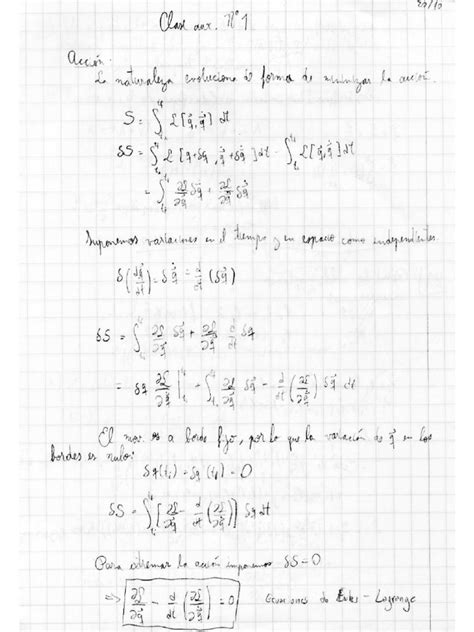 Clase aux. N°1
Acción:
La naturaleza evoluciona de forma de minimizar la acción.
S = ∫_{t_i}^{t_f} ℒ[q⃗, q⃗̇] dt
δS = ∫_{t_i}^{t_f} ℒ[q+δq, q⃗̇+δq⃗̇] dt - ∫_{t_i}^{t_f} ℒ[q⃗, q⃗̇] dt
= ∫_{t_i}^{t_f} ∂ℒ/∂q⃗ δq⃗ + ∂ℒ/∂q⃗̇ δq⃗̇
Suponemos variaciones en el tiempo y en espacio como independientes
δ(dq⃗/dt) = δq⃗̇ = d/dt (δq⃗)
δS = ∫_{t_i}^{t_f} ∂ℒ/∂q⃗ δq⃗ + ∂ℒ/∂q⃗̇ d/dt δq
= δq ∂ℒ/∂q⃗̇ |_{t_i}^{t_f} + ∫_{t_i}^{t_f} ∂ℒ/∂q⃗ δq⃗ - d/dt (∂ℒ/∂q⃗̇) δq⃗ dt
El mov. es a borde fijo, por lo que la variación de q⃗ en los
bordes es nula:
δq(t_i) = δq(t_f) = 0
δS = ∫_{t_i}^{t_f} [∂ℒ/∂q⃗ - d/dt (∂ℒ/∂q⃗̇)] δq dt
Para extremar la acción imponemos δS = 0
⇒ ∂ℒ/∂q⃗ - d/dt (∂ℒ/∂q⃗̇) = 0 Ecuaciones de Euler - Lagrange